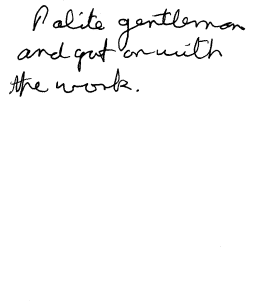 Polite gentleman
and got on with
the work.